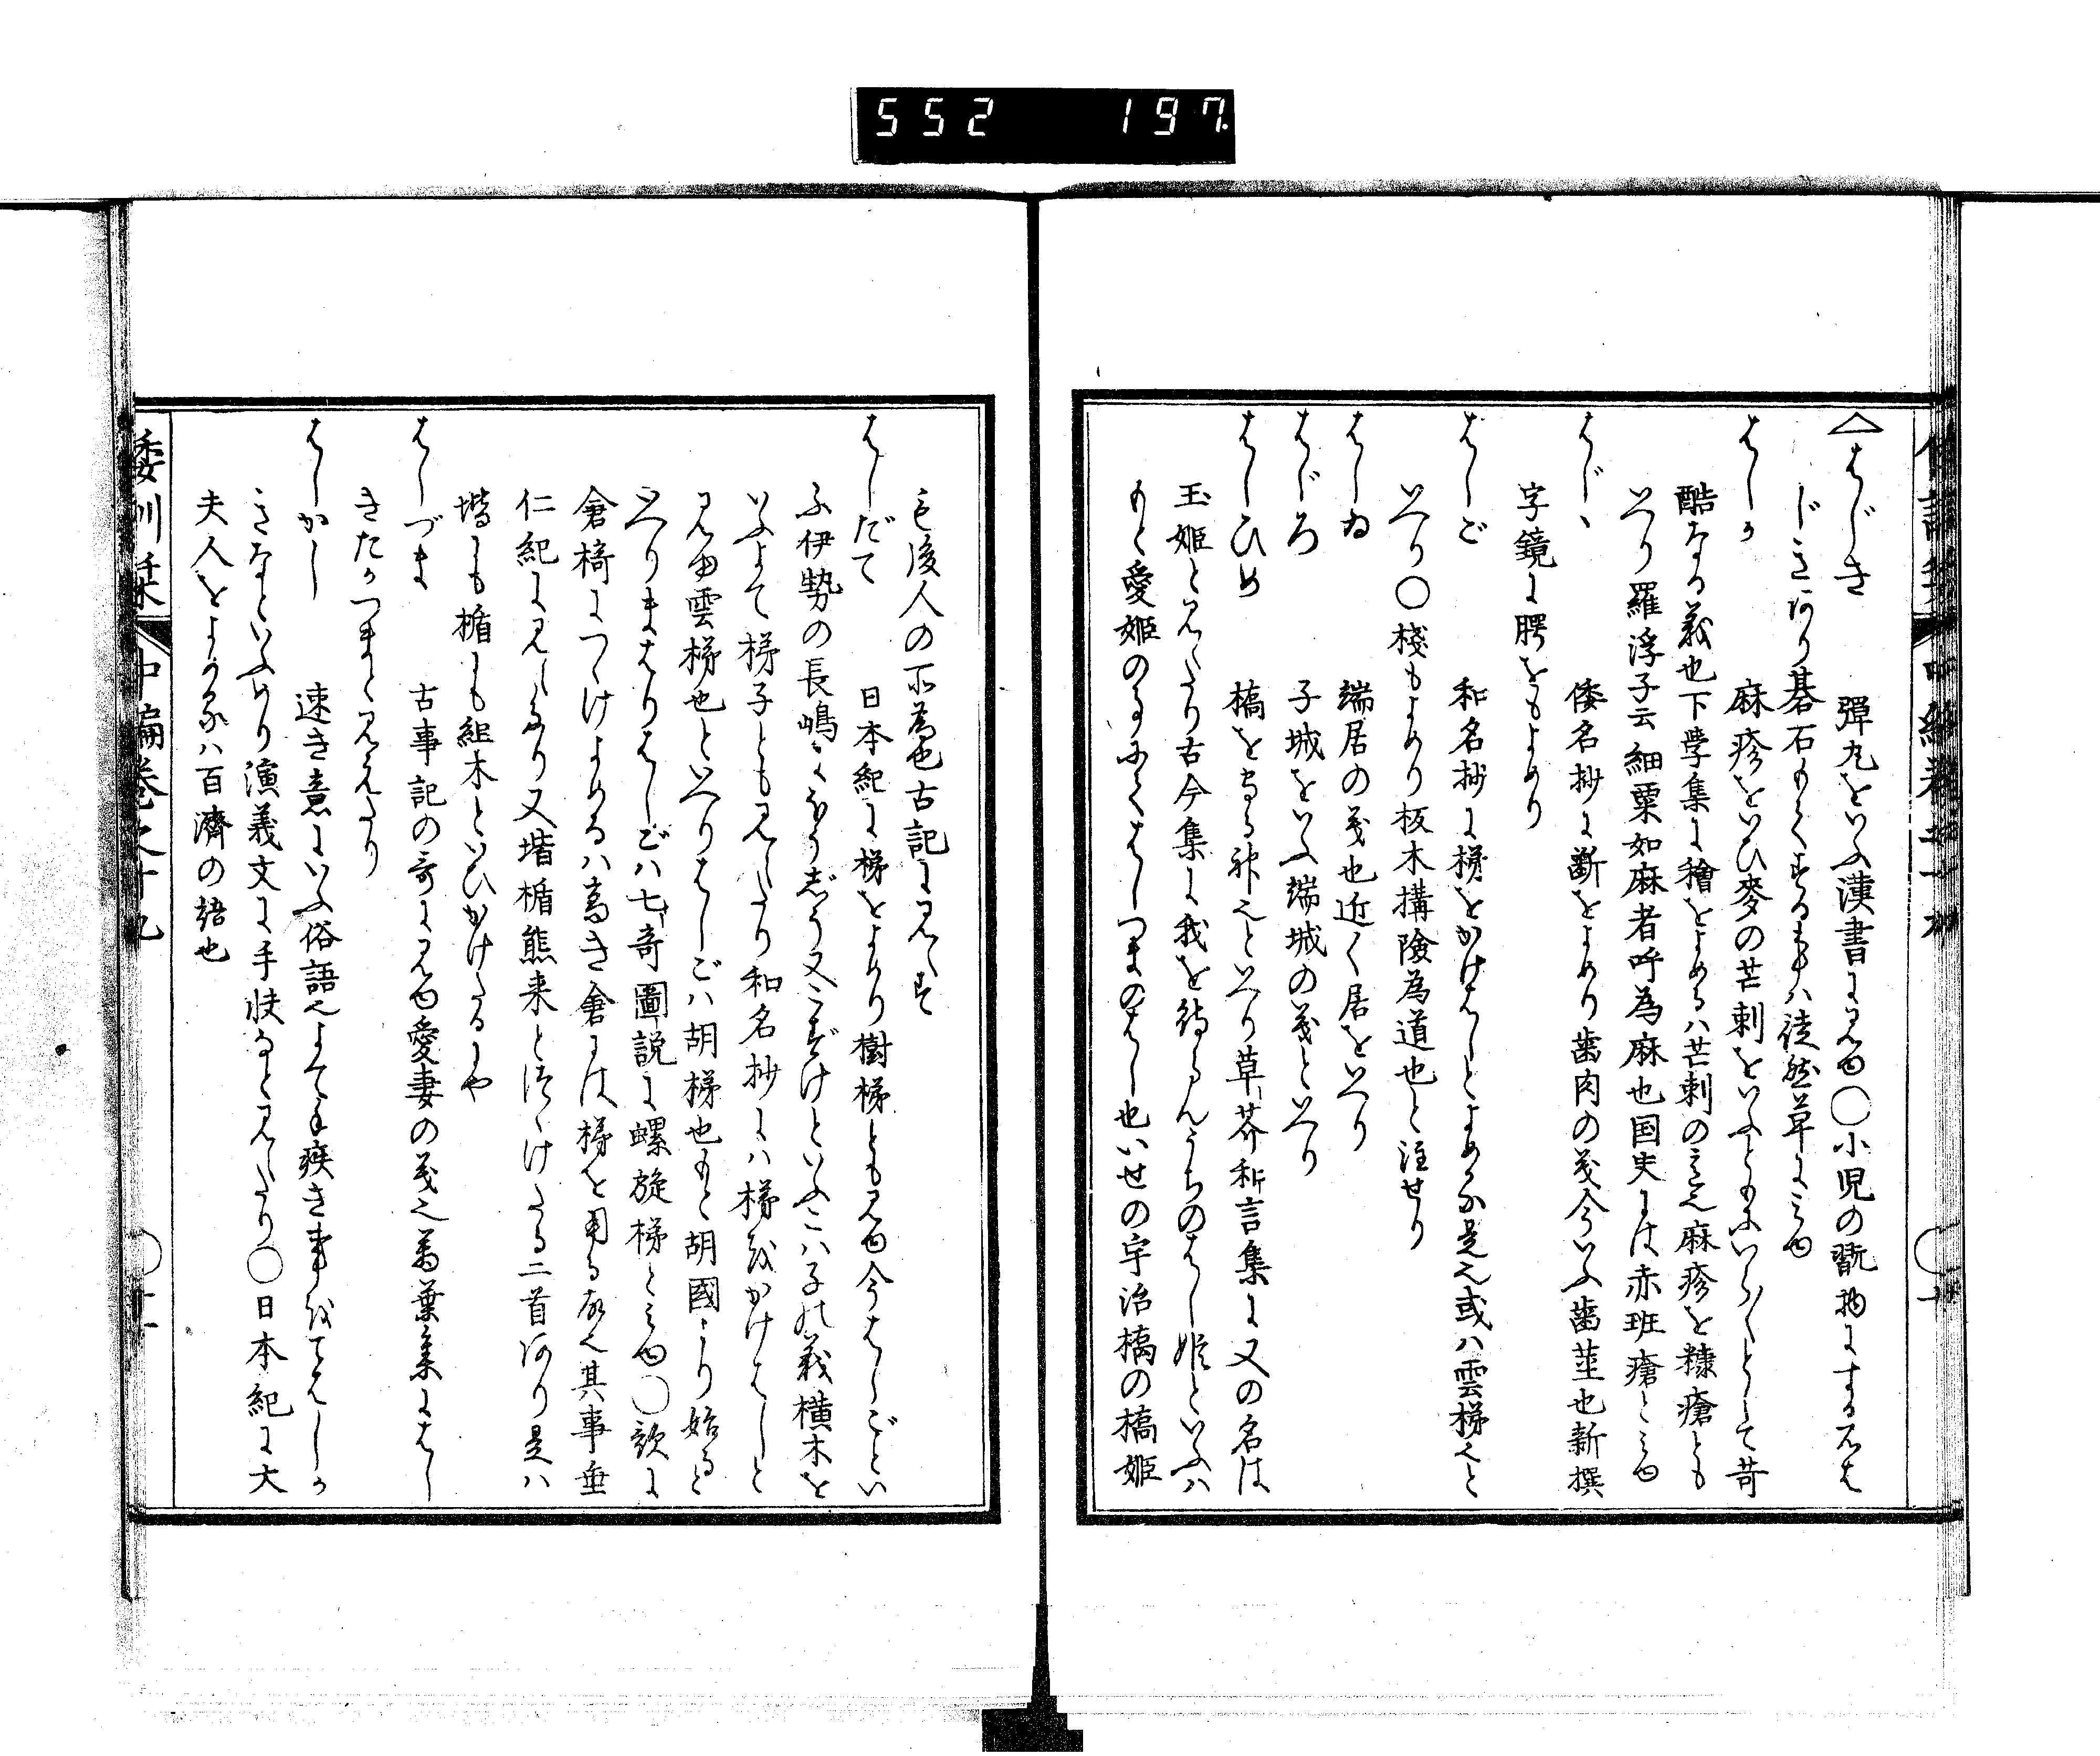 552 197
△はじき 彈丸をいふ漢書に見ゆ○小児の翫物にするは
じきあり碁石もてする事ハ徒然草にミゆ
はしか 麻疹をいひ麥の芒刺をいふともにいら〳〵として苛
酷なる義也下學集に穭をよめるハ芒刺の意也麻疹を糠瘡とも
いへり羅浮子云細粟如麻者呼為麻也国史には赤班瘡とミゆ
はじゝ 倭名抄に齗をよめり齒肉の義今いふ齒莖也新撰
字鏡に腭をもよめり
はしご 和名抄に梯をかけはしとよめる是也或ハ雲梯也と
いへり○棧もよめり板木構險為道也と注せり
はしゐ 端居の義也近く居をいへり
はじろ 子城をいふ端城の義といへり
はしひめ 橋を守る神也といへり草芥和言集に又の名は
玉姫と見えたり古今集に我を待らんうちのはし姫といふハ
もと愛姫の事にてはしつまのはし也いせの宇治橋の橋姫
も後人の所為也古記に見えず
はしだて 日本紀に梯をよめり樹梯とも見ゆ今はしごとい
ふ伊勢の長嶋
いふよて梯子とも見えたり和名抄にハ梯をかけはしと
見ゆ雲梯也といへりはしごハ胡梯也もと胡國より始ると
いへりまはりはしごハ七奇圖説に螺旋梯とミゆ○歌に
倉椅につゝけよめるハ高き倉には梯を用る故也其事垂
仁紀に見えたり又堦楯熊来とつゝけたる二首あり是ハ
堦にも楯にも組木といひかけたるにや
はしづま 古事記の哥に見ゆ愛妻の義也萬葉集にはし
きたかつまと見えたり
はしかし 速き意にいふ俗語也よても疾き事をてはしか
きなといふめり演義文に手快なと見えたり○日本紀に大
夫人をよめるハ百濟の語也
倭訓栞 中編巻之十九